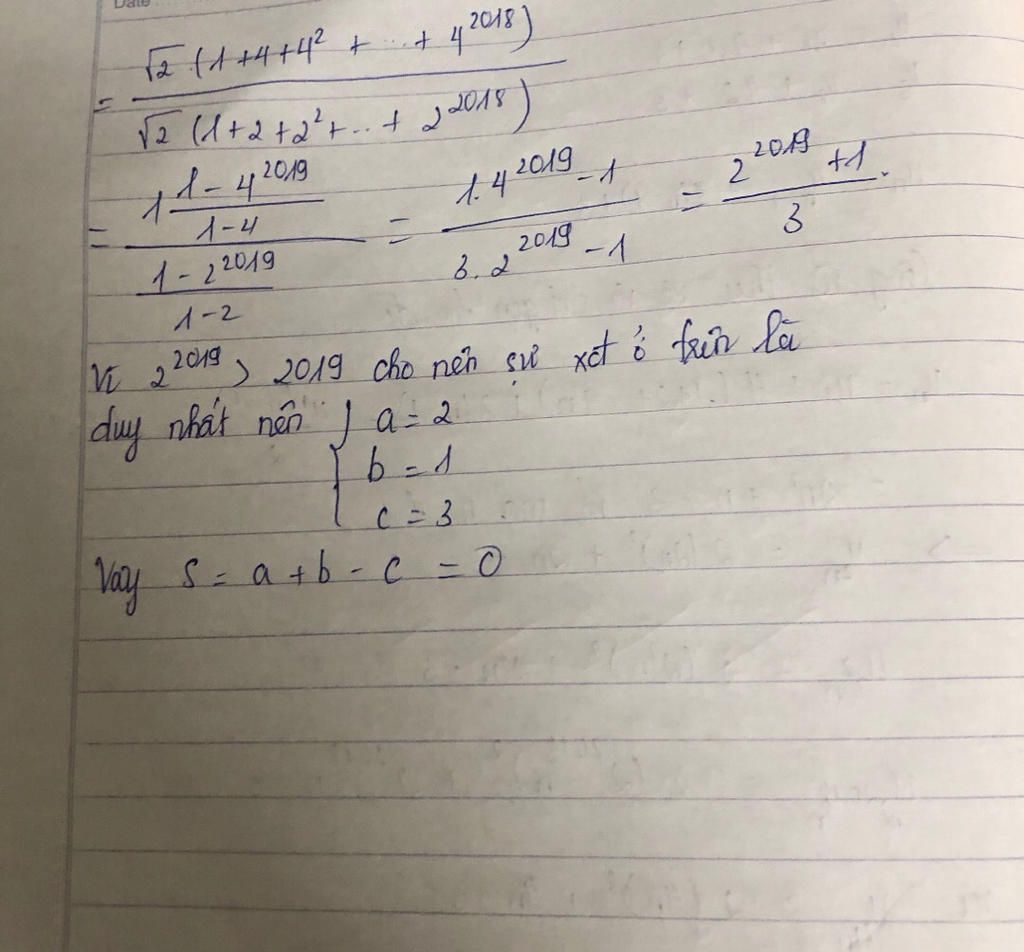 Date
= √2 (1+4+4² + ... + 4^2018) / √2 (1+2+2²+...+ 2^2018)
= (1 (1-4^2019)/(1-4)) / ((1-2^2019)/(1-2)) = (1.4^2019 -1) / (3.2^2019 -1) = (2^2019 +1) / 3.
Vì 2^2019 > 2019 cho nên sự xét ở trên là
duy nhất nên { a = 2
b = 1
c = 3
Vậy S = a + b - c = 0